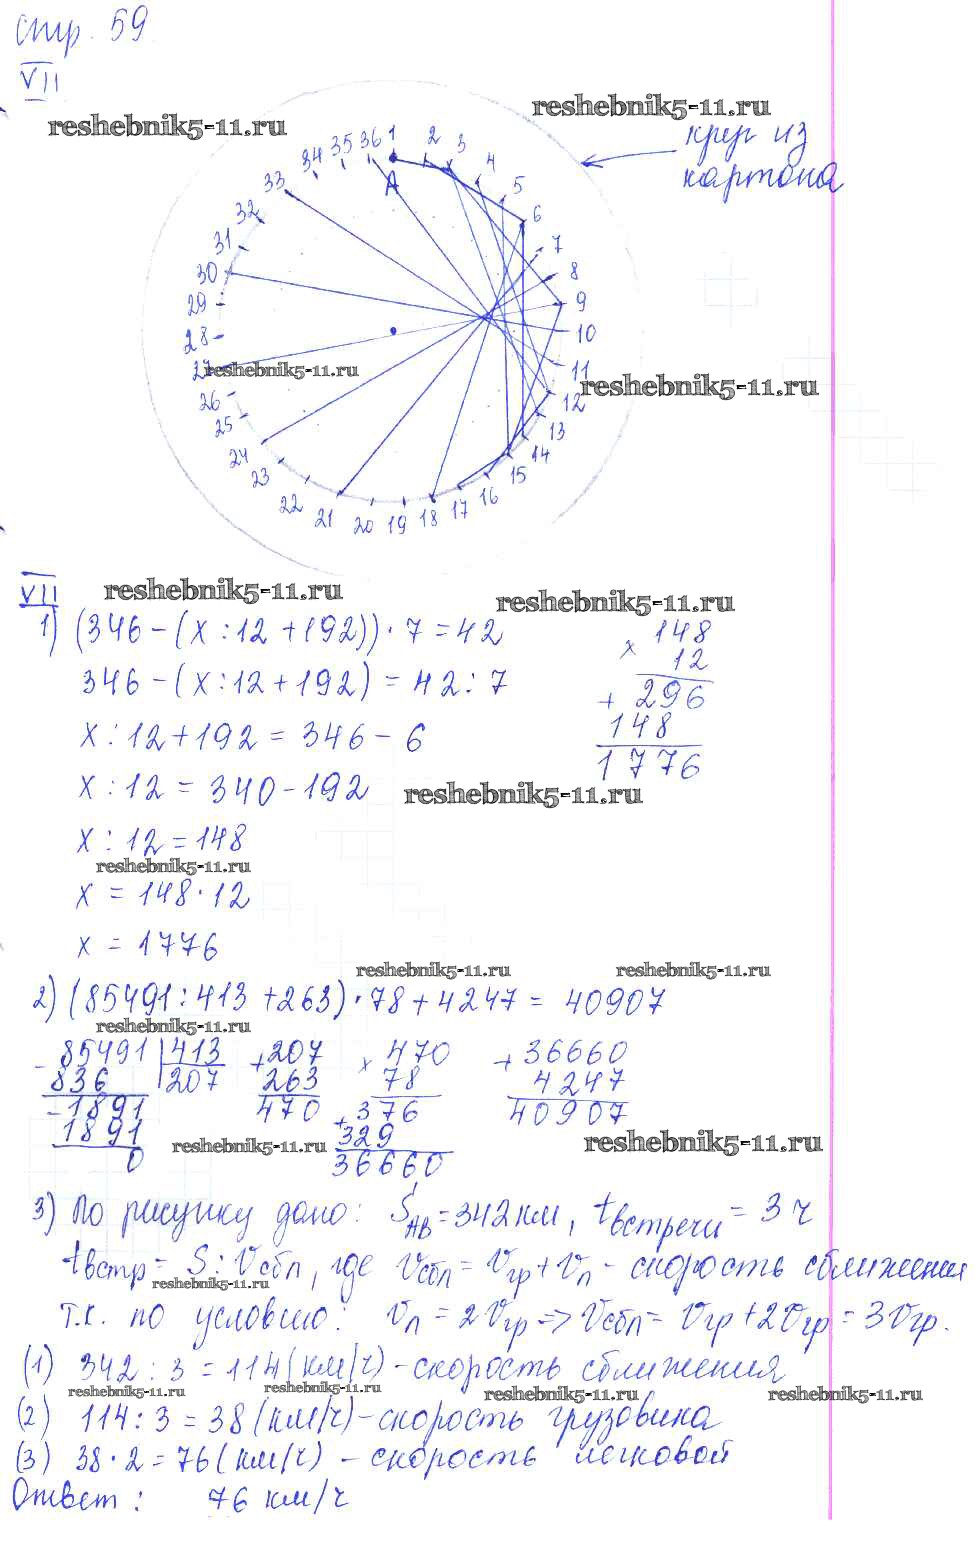 стр. 59
VII
reshebnik5-11.ru
reshebnik5-11.ru
круг из
картона
1 2 3 4 5 6 7 8 9 10 11 12 13 14 15 16 17 18 19 20 21 22 23 24 25 26 27 28 29 30 31 32 33 34 35 36
A
reshebnik5-11.ru
reshebnik5-11.ru
VII
reshebnik5-11.ru
reshebnik5-11.ru
1) (346 - (x : 12 + 192)) · 7 = 42
346 - (x : 12 + 192) = 42 : 7
x : 12 + 192 = 346 - 6
x : 12 = 340 - 192
reshebnik5-11.ru
x : 12 = 148
reshebnik5-11.ru
x = 148 · 12
x = 1776
× 148
12
+ 296
148
1776
reshebnik5-11.ru
reshebnik5-11.ru
2) (85491 : 413 + 263) · 78 + 4247 = 40907
reshebnik5-11.ru
- 85491 | 413
836 207
- 1891
1891
0
+ 207
263
470
× 470
78
+ 376
329
36660
+ 36660
4247
40907
reshebnik5-11.ru
reshebnik5-11.ru
3) По рисунку дано: S AB = 342 км, t встречи = 3 ч
t встр = S : V сбл, где V сбл = V гр + V л - скорость сближения
reshebnik5-11.ru
т.к. по условию: V л = 2 V гр => V сбл = V гр + 2 V гр = 3 V гр.
(1) 342 : 3 = 114 (км/ч) - скорость сближения
reshebnik5-11.ru
reshebnik5-11.ru
reshebnik5-11.ru
reshebnik5-11.ru
(2) 114 : 3 = 38 (км/ч) - скорость грузовика
(3) 38 · 2 = 76 (км/ч) - скорость легковой
Ответ: 76 км/ч